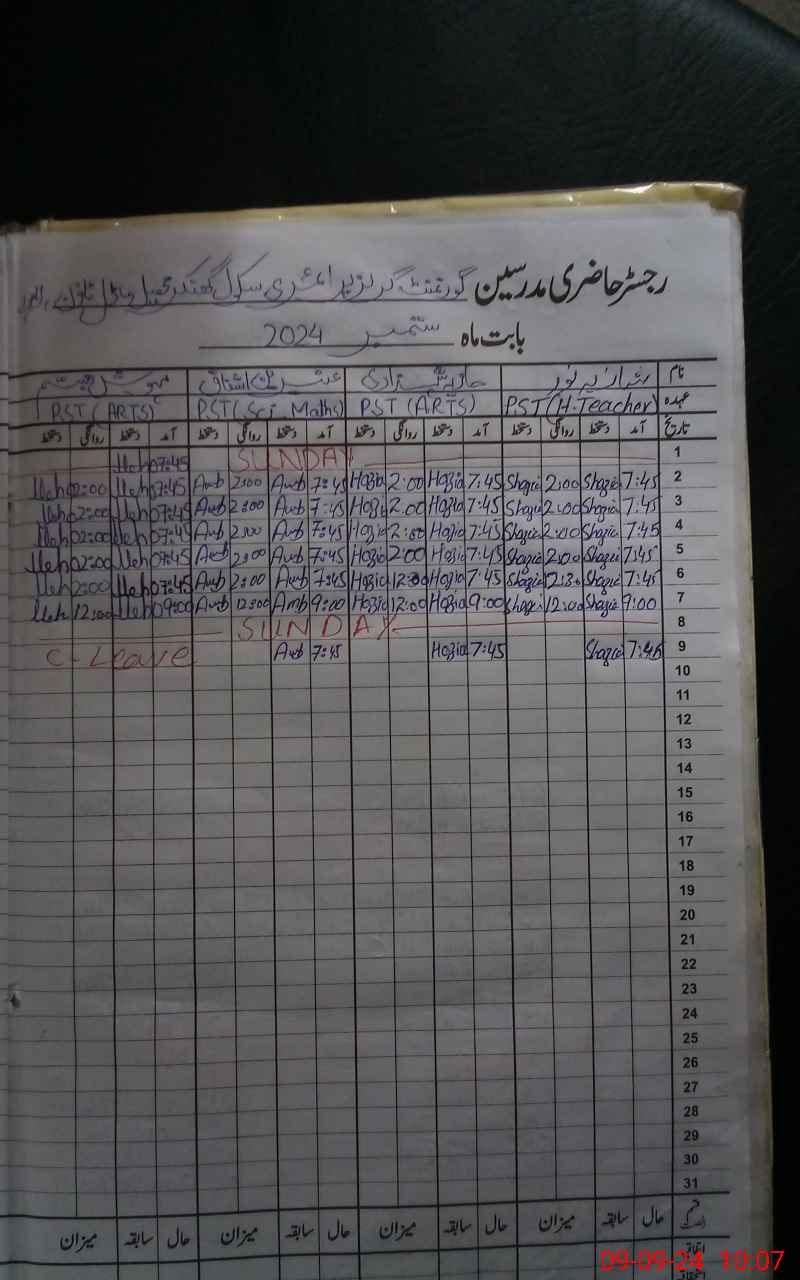 رجسٹر حاضری مدرسین گورنمنٹ گرلز پرائمری سکول
بابت ماہ ستمبر 2024
نام
عہدہ PST (H.Teacher) PST (ARTS) PST (Sci Maths) PST (ARTS)
تاریخ آمد دستخط روانگی دستخط آمد دستخط روانگی دستخط آمد دستخط روانگی دستخط آمد دستخط روانگی دستخط
1 SUNDAY 07:45 Meh
2 7:45 Shazia 2:00 Shazia 7:45 Hazia 2:00 Hazia 7:45 Amb 2:00 Amb 07:45 Meh 02:00 Meh
3 7:45 Shazia 2:00 Shazia 7:45 Hazia 2:00 Hazia 7:45 Amb 2:00 Amb 07:45 Meh 02:00 Meh
4 7:45 Shazia 2:00 Shazia 7:45 Hazia 2:00 Hazia 7:45 Amb 2:00 Amb 07:45 Meh 02:00 Meh
5 7:45 Shazia 2:00 Shazia 7:45 Hazia 2:00 Hazia 7:45 Amb 2:00 Amb 07:45 Meh 02:00 Meh
6 7:45 Shazia 12:30 Shazia 7:45 Hazia Hazia 7:45 Amb 2:00 Amb 07:45 Meh 2:00 Meh
7 9:00 Shazia 12:00 Shazia 9:00 Hazia 12:00 Hazia 9:00 Amb 12:00 Amb 09:00 Meh 12:00 Meh
8 SUNDAY
9 7:45 Shazia 7:45 Hazia 7:45 Amb C-Leave
10
11
12
13
14
15
16
17
18
19
20
21
22
23
24
25
26
27
28
29
30
31
حال سابقہ میزان حال سابقہ میزان حال سابقہ میزان حال سابقہ میزان
09-09-24 10:07